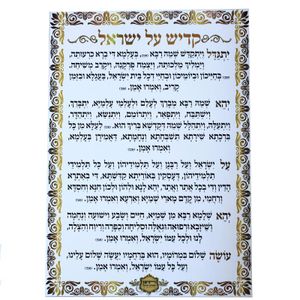 קדיש על ישראל
יתגדל ויתקדש שמה רבא (אמן), בעלמא די ברא כרעותה,
וימליך מלכותה, ויצמח פרקנה, ויקרב משיחה
(אמן) בחייכון וביומיכון ובחיי דכל בית ישראל, בעגלא ובזמן
קריב, ואמרו אמן. (אמן)
יהא שמה רבא מברך לעלם ולעלמי עלמיא, יתברך,
וישתבח, ויתפאר, ויתרומם, ויתנשא, ויתהדר,
ויתעלה, ויתהלל שמה דקדשא בריך הוא (אמן). לעלא מן כל
ברכתא שירתא תשבחתא ונחמתא, דאמירן בעלמא,
ואמרו אמן. (אמן)
על ישראל ועל רבנן ועל תלמידיהון, ועל כל תלמידי
תלמידיהון, דעסקין באוריתא קדשתא, די באתרא
הדין ודי בכל אתר ואתר, יהא לנא ולהון ולכון חנא וחסדא
ורחמי, מן קדם מארי שמיא וארעא, ואמרו אמן. (אמן)
יהא שלמא רבא מן שמיא, חיים ושבע וישועה ונחמה
ושיזבא ורפואה וגאלה וסליחה וכפרה וריוח והצלה,
לנו ולכל עמו ישראל, ואמרו אמן. (אמן)
עושה שלום במרומיו, הוא ברחמיו יעשה שלום עלינו,
ועל כל עמו ישראל, ואמרו אמן. (אמן)